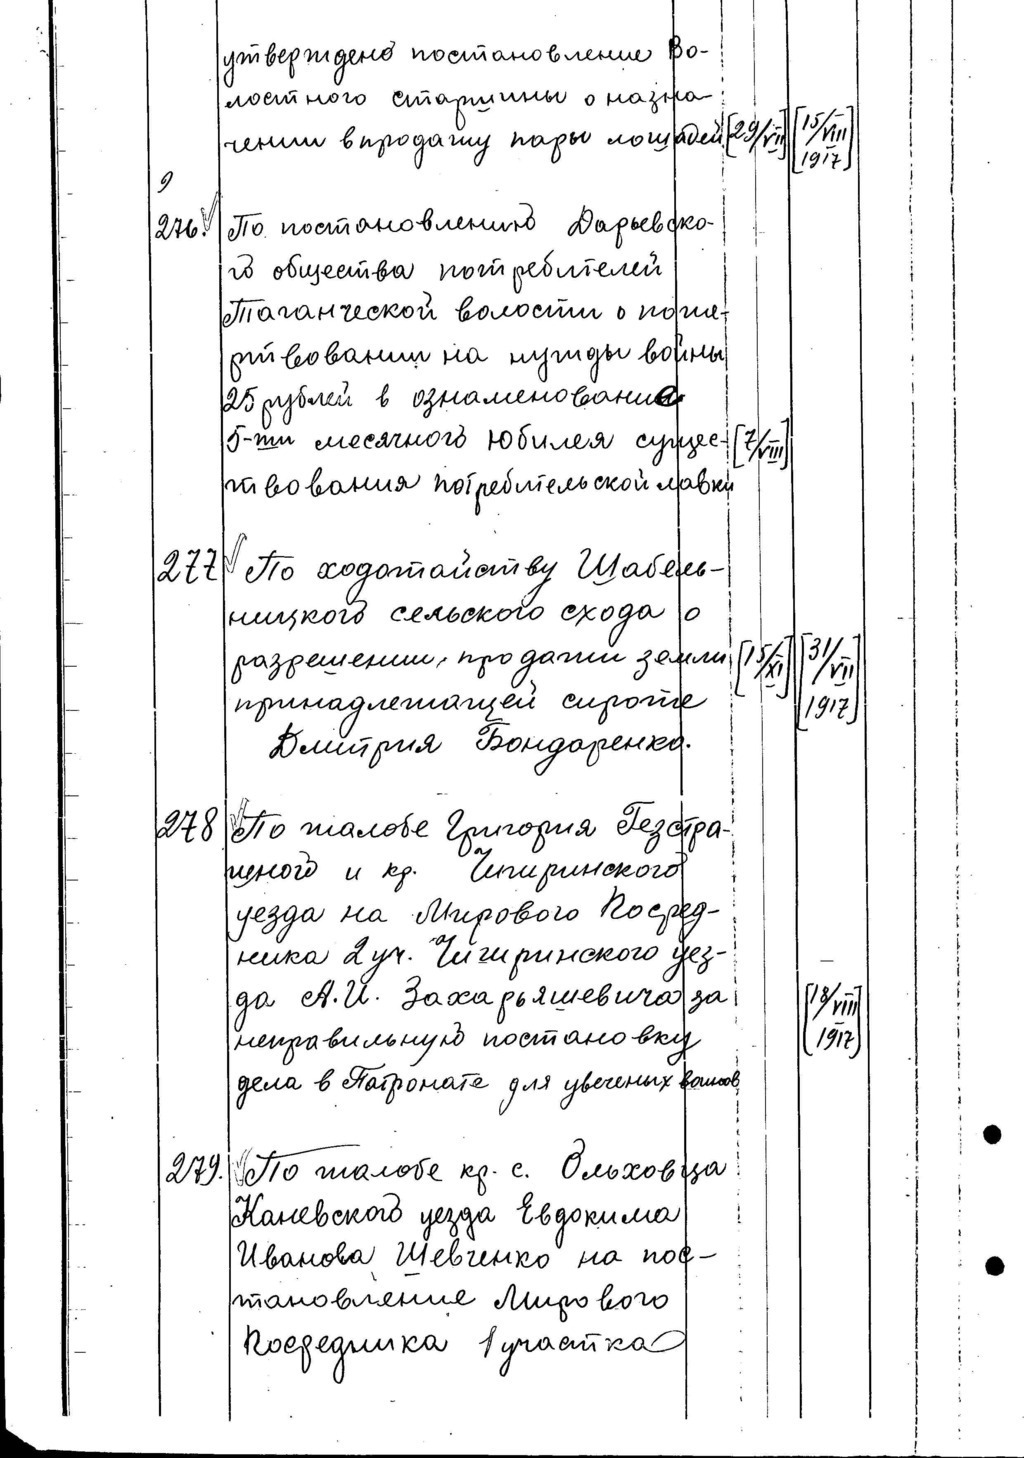 утверждено постановление Во-
лостного старшины о назна-
чении в продажу пары лошадей [29/VII] [15/VIII 1917]
9
276. По постановлению Дарьевско-
го общества потребителей
Таганческой волости о поже-
ртвовании на нужды войны
25 рублей в ознаменование
5-ти месячного юбилея сущес- [7/VIII]
твования потребительской лавки
277 По ходотайству Шабель-
ницкого сельского схода о
разрешении, продажи земли [15/XI] [31/VII 1917]
принадлежащей сироте
Дмитрия Бондаренко.
278 По жалобе Григория Гезстра-
шного и кр. Чигиринского
уезда на Мирового Посред-
ника 2 уч. Чигиринского уез-
да А.И. Захарьяшевича за [18/VIII 1917]
неправильную постановку
дела в Патронате для увеченых воинов
279. По жалобе кр. с. Ольховца
Каневского уезда Евдокима
Иванова Шевченко на пос-
тановление Мирового
Посредника 1 участка